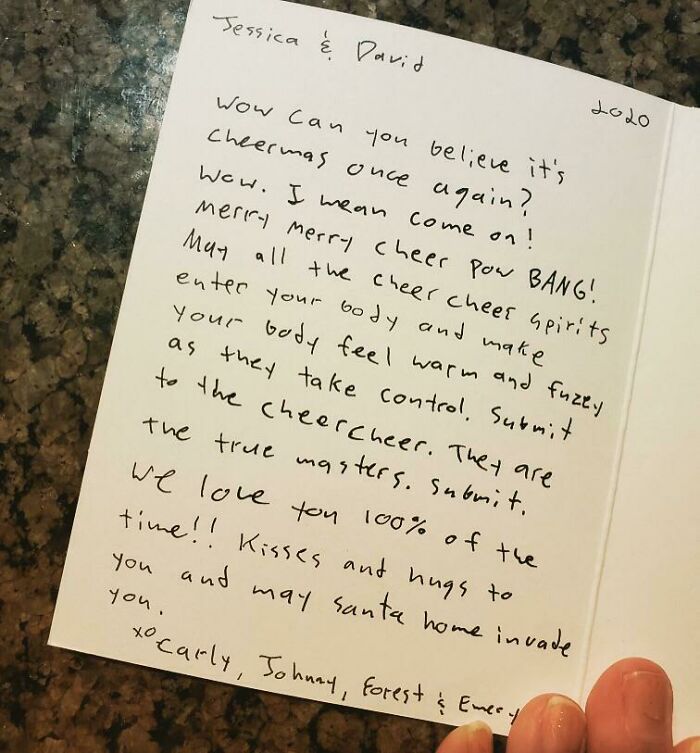 Jessica & David
2020
Wow can you believe it's
cheermas once again?
Wow. I mean come on!
Merry Merry cheer pow BANG!
May all the cheer cheer spirits
enter your body and make
your body feel warm and fuzzy
as they take control. Submit
to the cheercheer. They are
the true masters. Submit.
We love you 100% of the
time!! Kisses and hugs to
you and may santa home invade
you.
xo
Carly, Johnny, Forest & Emery